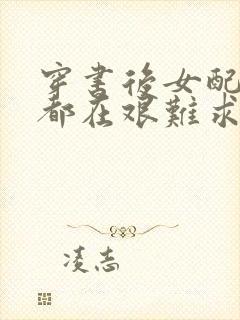 穿书后女配
都在艰难求
凌志